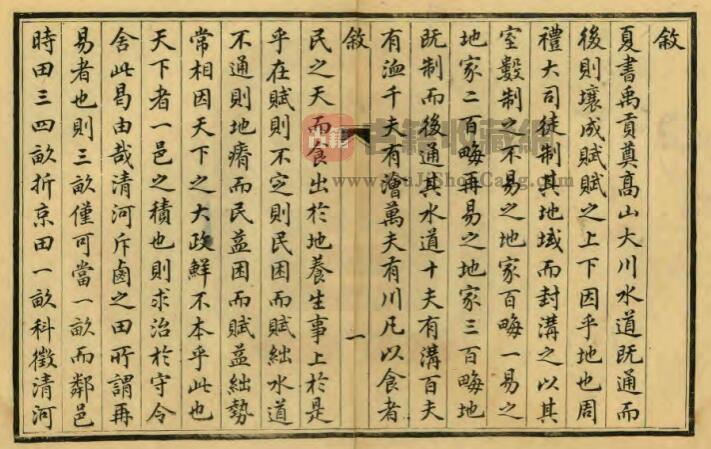 敘
夏書禹貢奠高山大川水道既通而
後則壤成賦賦之上下因乎地也周
禮大司徒制其地域而封溝之以其
室數制之不易之地家百畮一易之
地家二百畮再易之地家三百畮地
既制而後通其水道十夫有溝百夫
有洫千夫有澮萬夫有川凡以食者
敘 一
民之天而食出於地養生事上於是
乎在賦則不定則民困而賦絀水道
不通則地瘠而民益困而賦益絀勢
常相因天下之大政鮮不本乎此也
天下者一邑之積也則求治於守令
舍此曷由哉清河斥鹵之田所謂再
易者也則三畝僅可當一畝而鄰邑
時田三四畝折京田一畝科徵清河